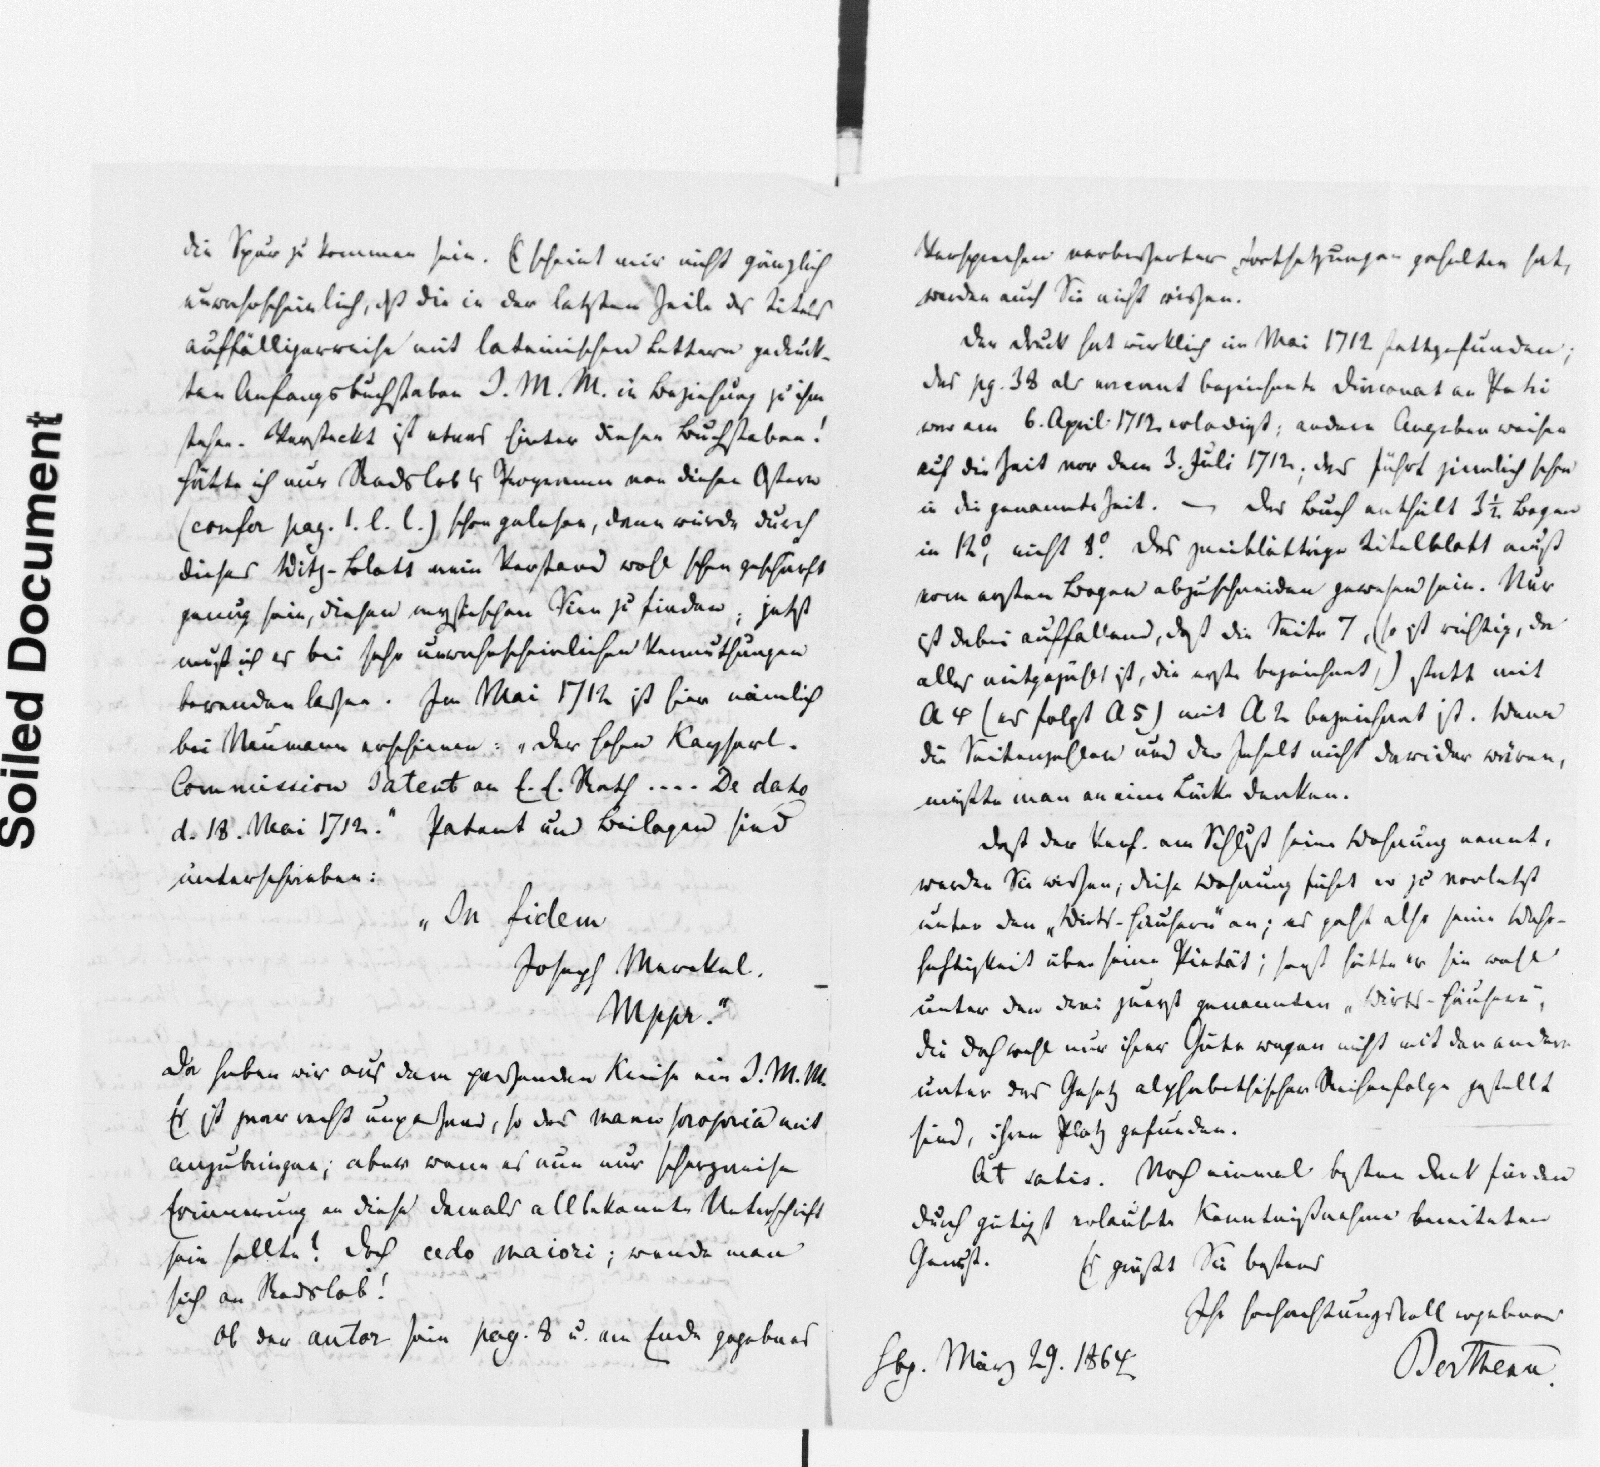 Soiled Document
die Spur zu kommen sein. Es scheint mir nicht gänzlich
unwahrscheinlich, daß die in der letzten Zeile des Titels
auffälligerweise mit lateinischen Lettern gedruck-
ten Anfangsbuchstaben J. M. M. in Beziehung zu ihm
stehen. Versteckt ist etwas hinter diesen Buchstaben!
hätte ich nur Redslob's Programm von diesen Ostern
(confer pag. 1. l. l.) schon gelesen, dann würde durch
dieses Witz-Blatt mein Verstand wohl schon geschärft
genug sein, diesen mystischen Sinn zu finden; jetzt
muß ich es bei sehr unwahrscheinlichen Vermuthungen
bewenden lassen. Im Mai 1712 ist hier nämlich
bei Neumann erschienen: „Der hohen Kayserl.
Commission Patent an E. E. Rath .... De dato
d. 18. Mai 1712." Patent und Beilagen sind
unterschrieben:
„In fidem
Joseph Merckel.
Mppr."
Da haben wir aus dem passenden Kreise ein J. M. M.
Es ist zwar recht unpassend, so das manu propria mit
anzubringen; aber wenn es nun nur scherzweise
Erinnerung an diese damals allbekannte Unterschrift
sein sollte? Doch cedo maiori; wende man
sich an Redslob!
Ob der autor sein pag. 8 u. am Ende gegebenes
Versprechen verbesserter Fortsetzungen gehalten hat,
werden auch Sie nicht wissen.
Der Druck hat wirklich im Mai 1712 stattgefunden;
das pg. 38 als vacant bezeichnete Diaconat an Petri
war am 6. April 1712 erledigt; andere Angaben weisen
auf die Zeit vor dem 3. Juli 1712; das führt ziemlich schon
in die genannte Zeit. — Das Buch enthält 3½ Bogen
in 12°, nicht 8°. Das zweiblättrige Titelblatt muß
vom ersten Bogen abzuschneiden gewesen sein. Nur
ist dabei auffallend, daß die Seite 7, (so ist richtig, da
alles mitgezählt ist, die erste bezeichnet,) statt mit
A 4 (es folgt A 5) mit A 2 bezeichnet ist. Wenn
die Seitenzahlen und der Inhalt nicht dawider wären,
müßte man an eine Lücke denken.
Daß der Verf. am Schluß seine Wohnung nennt,
werden Sie wissen; diese Wohnung führt er zu vorletzt
unter den „Wirts-Häusern" an; es geht also seine Wahr-
haftigkeit über seine Pietät; sonst hätte er sie wohl
unter den drei zuerst genannten „Wirts-Häusern",
die doch wohl nur ihrer Güte wegen nicht mit den andern
unter das Gesetz alphabethischer Reihenfolge gestellt
sind, ihren Platz gefunden.
At satis. Noch einmal besten Dank für den
durch gütigst erlaubte Kenntnißnahme bereiteten
Genuß. Es grüßt Sie bestens
Ihr hochachtungsvoll ergebener
Hbg. März 29. 1864 Bertheau.